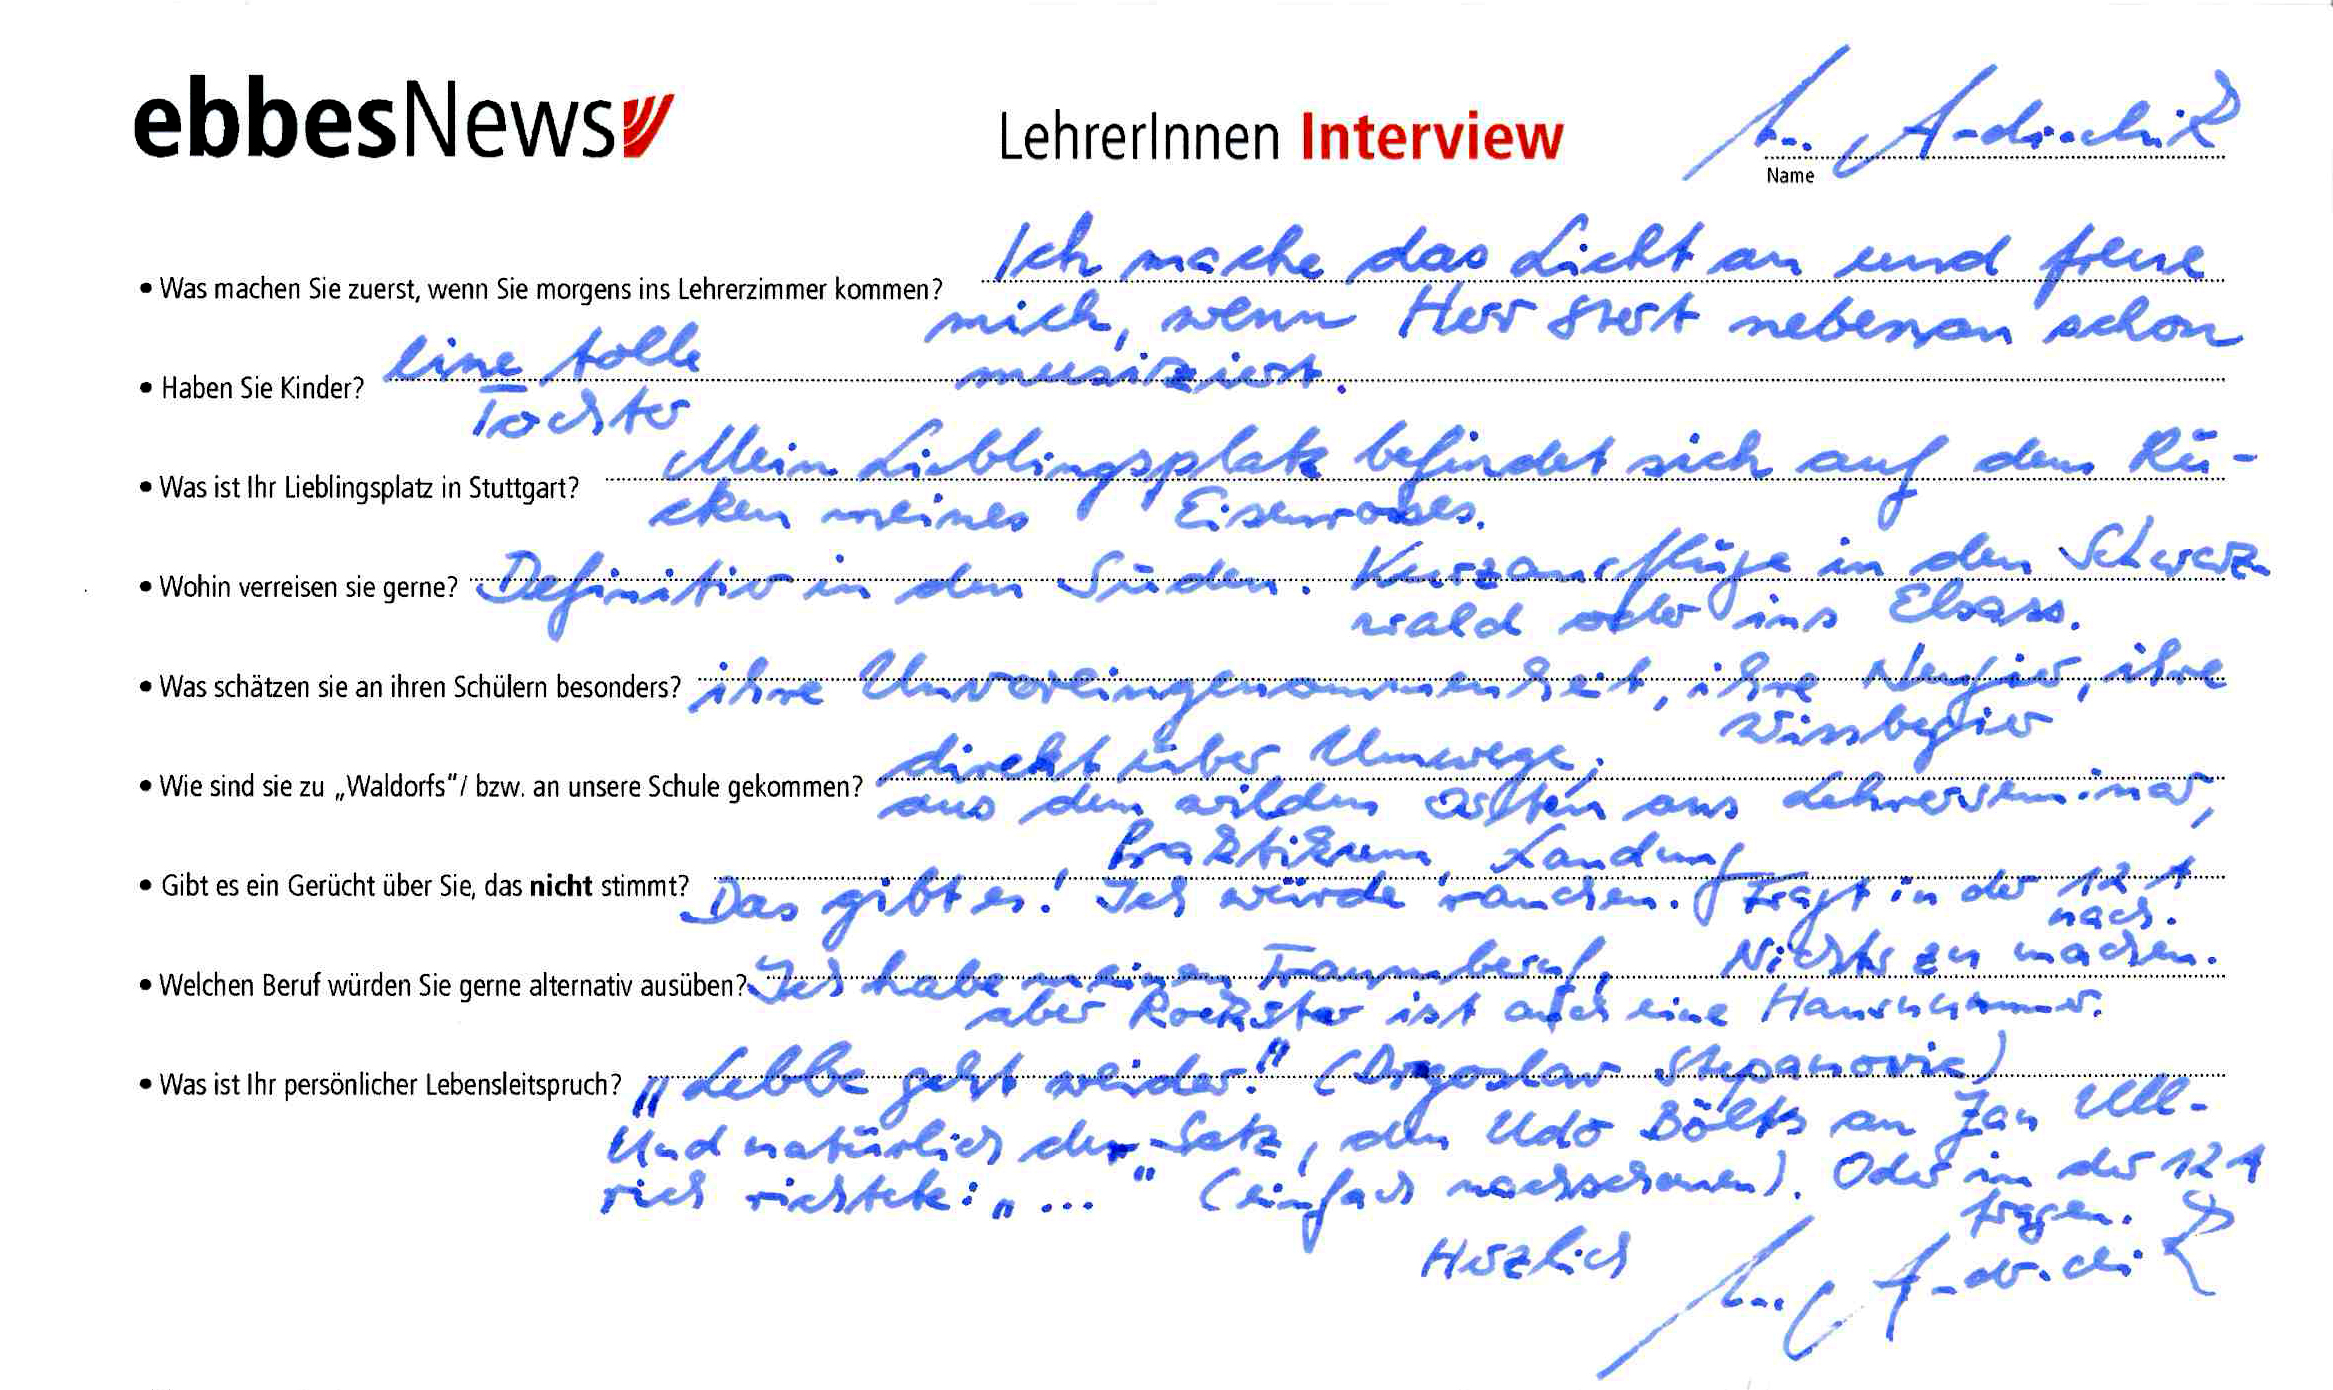 ebbesNews
LehrerInnen Interview
Name
• Was machen Sie zuerst, wenn Sie morgens ins Lehrerzimmer kommen? Ich mache das Licht an und freue
mich, wenn Herr nebenan schon
musiziert.
• Haben Sie Kinder? Eine tolle
Tochter
• Was ist Ihr Lieblingsplatz in Stuttgart? Mein Lieblingsplatz befindet sich auf dem Rü-
cken meines Eisenrosses.
• Wohin verreisen sie gerne? Definitiv in den Süden. Kurzausflüge in den Schwarz
wald oder ins Elsass.
• Was schätzen sie an ihren Schülern besonders? ihre Unvoreingenommenheit, ihre Neugier, ihre
Wissbegier
• Wie sind sie zu „Waldorfs“/ bzw. an unsere Schule gekommen? direkt über Umwege;
aus dem wilden Osten ans Lehrerseminar,
Praktikum, Landung
• Gibt es ein Gerücht über Sie, das nicht stimmt? Das gibt es! Ich würde rauchen. Fragt in der 12 1
nach.
• Welchen Beruf würden Sie gerne alternativ ausüben? Ich habe meinen Traumberuf, Nichts zu machen.
aber Rockstar ist auch eine Hausnummer.
• Was ist Ihr persönlicher Lebensleitspruch? „Lebbe geht weider!" (Dragoslav Stepanovic)
Und natürlich der Satz, den Udo Bölts an Jan Ull-
rich richtete: „..." (einfach nachschauen). Oder in der 12 1
fragen.
Herzlich